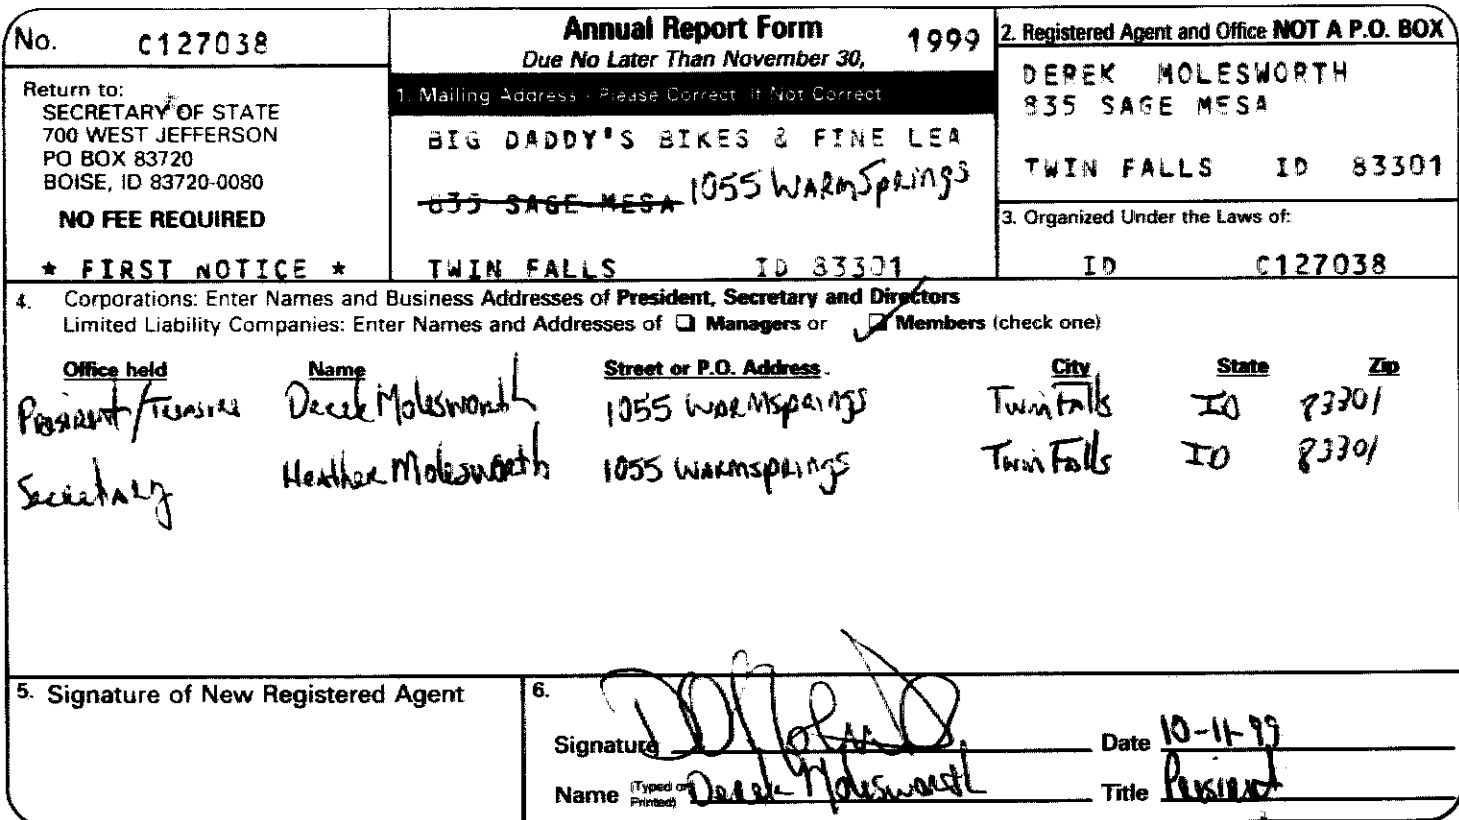 No. C127038
Return to:
SECRETARY OF STATE
700 WEST JEFFERSON
PO BOX 83720
BOISE, ID 83720-0080
NO FEE REQUIRED
* FIRST NOTICE *
Annual Report Form 1999
Due No Later Than November 30,
1. Mailing Address - Please Correct If Not Correct
BIG DADDY'S BIKES & FINE LEA
835 SAGE MESA 1055 WARMSprings
TWIN FALLS ID 83301
2. Registered Agent and Office NOT A P.O. BOX
DEREK MOLESWORTH
835 SAGE MESA
TWIN FALLS ID 83301
3. Organized Under the Laws of:
ID C127038
4. Corporations: Enter Names and Business Addresses of President, Secretary and Directors
Limited Liability Companies: Enter Names and Addresses of ☐ Managers or ☑ Members (check one)
Office held Name Street or P.O. Address. City State Zip
President/ Derek Molesworth 1055 WARMsprings Twin Falls ID 83301
Secretary Heather Molesworth 1055 WARMsprings Twin Falls ID 83301
5. Signature of New Registered Agent
6.
Signature Date 10-11-99
Name (Typed or Printed) Derek Molesworth Title President